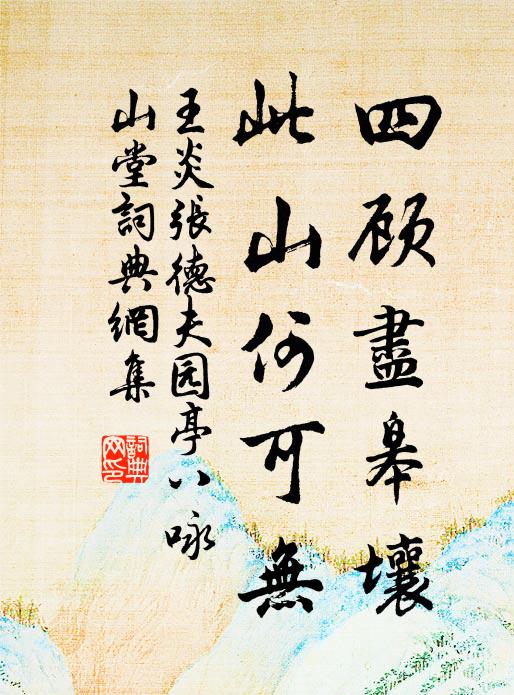 四顾盡皋壤
此山何可無
王炎張德夫园亭八咏
山堂詞典網集
詞典
网印